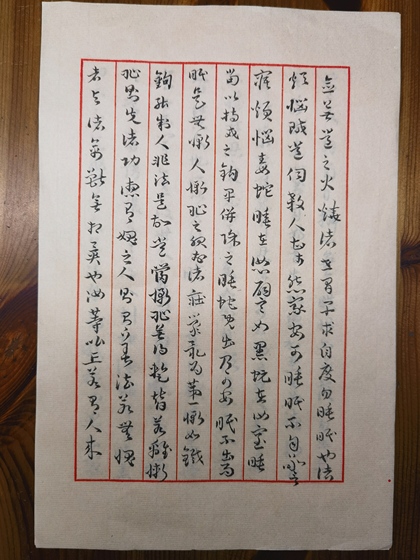 念無常之火燒諸世間早求自度勿睡眠也諸
煩惱賊常伺殺人甚於怨家安可睡眠不自警
寤煩惱毒蛇睡在汝心譬如黑蚖在汝室睡
當以持戒之鉤早併除之睡蛇既出乃可安眠不出而
眠是無慚人慚恥之服於諸莊嚴最為第一慚如鐵
鉤能制人非法是故常當慚恥無得暫替若離慚
恥則失諸功德有愧之人則有善法若無愧
者與諸禽獸無相異也汝等比丘若有人來